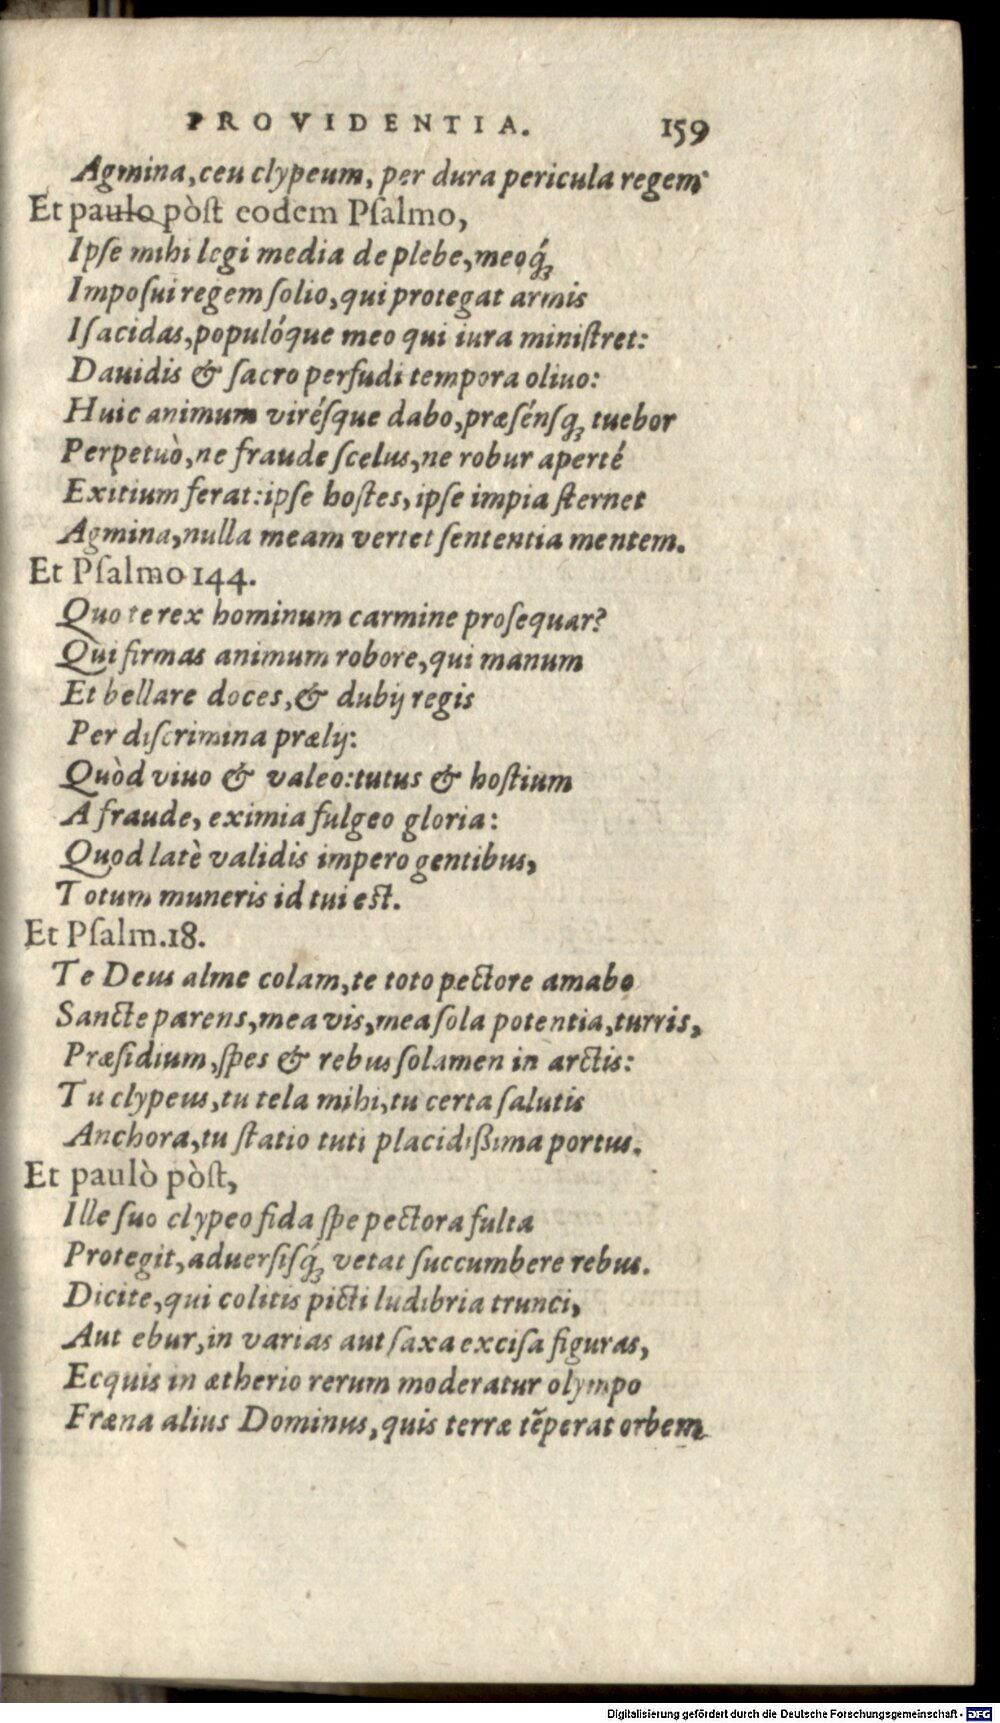 PROVIDENTIA. 159
Agmina, ceu clypeum, per dura pericula regem
Et paulo pòſt eodem Pſalmo,
Ipſe mihi legi media de plebe, meoq́;
Impoſui regem ſolio, qui protegat armis
Iſacidas, populóque meo qui iura miniſtret:
Dauidis & ſacro perfudi tempora oliuo:
Huic animum viréſque dabo, præſénſq; tuebor
Perpetuò, ne fraude ſcelus, ne robur aperté
Exitium ferat: ipſe hoſtes, ipſe impia ſternet
Agmina, nulla meam vertet ſententia mentem.
Et Pſalmo 144.
Quo te rex hominum carmine proſequar?
Qui firmas animum robore, qui manum
Et bellare doces, & dubij regis
Per diſcrimina prælij:
Quòd viuo & valeo: tutus & hoſtium
A fraude, eximia fulgeo gloria:
Quod latè validis impero gentibus,
Totum muneris id tui eſt.
Et Pſalm. 18.
Te Deus alme colam, te toto pectore amabo
Sancte parens, mea vis, mea ſola potentia, turris,
Præſidium, ſpes & rebus ſolamen in arctis:
Tu clypeus, tu tela mihi, tu certa ſalutis
Anchora, tu ſtatio tuti placidißima portus.
Et paulò pòſt,
Ille ſuo clypeo fida ſpe pectora fulta
Protegit, aduerſiſq́; vetat ſuccumbere rebus.
Dicite, qui colitis picti ludibria trunci,
Aut ebur, in varias aut ſaxa exciſa figuras,
Ecquis in ætherio rerum moderatur olympo
Fræna alius Dominus, quis terræ tẽperat orbem
Digitalisierung gefördert durch die Deutsche Forschungsgemeinschaft - DFG